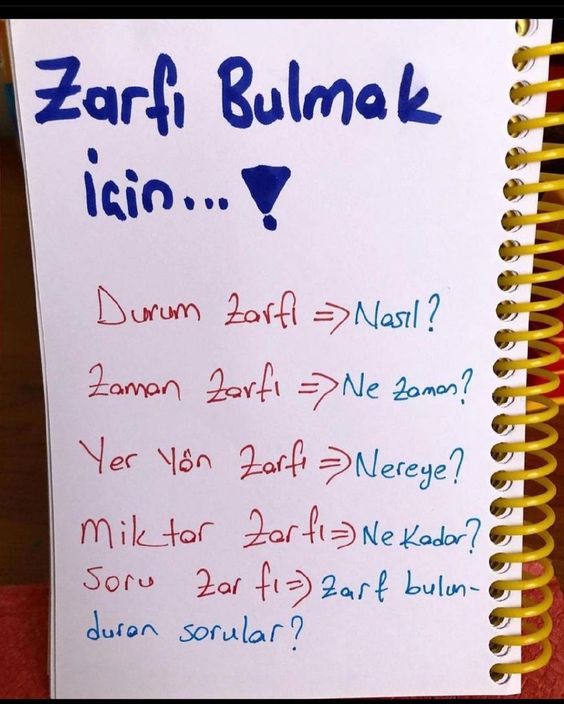 Zarfı Bulmak
İçin...!
Durum Zarfı => Nasıl?
Zaman Zarfı => Ne Zaman?
Yer Yön Zarfı => Nereye?
Miktar Zarfı => Ne Kadar?
Soru Zarfı => Zarf bulun-
duran sorular?